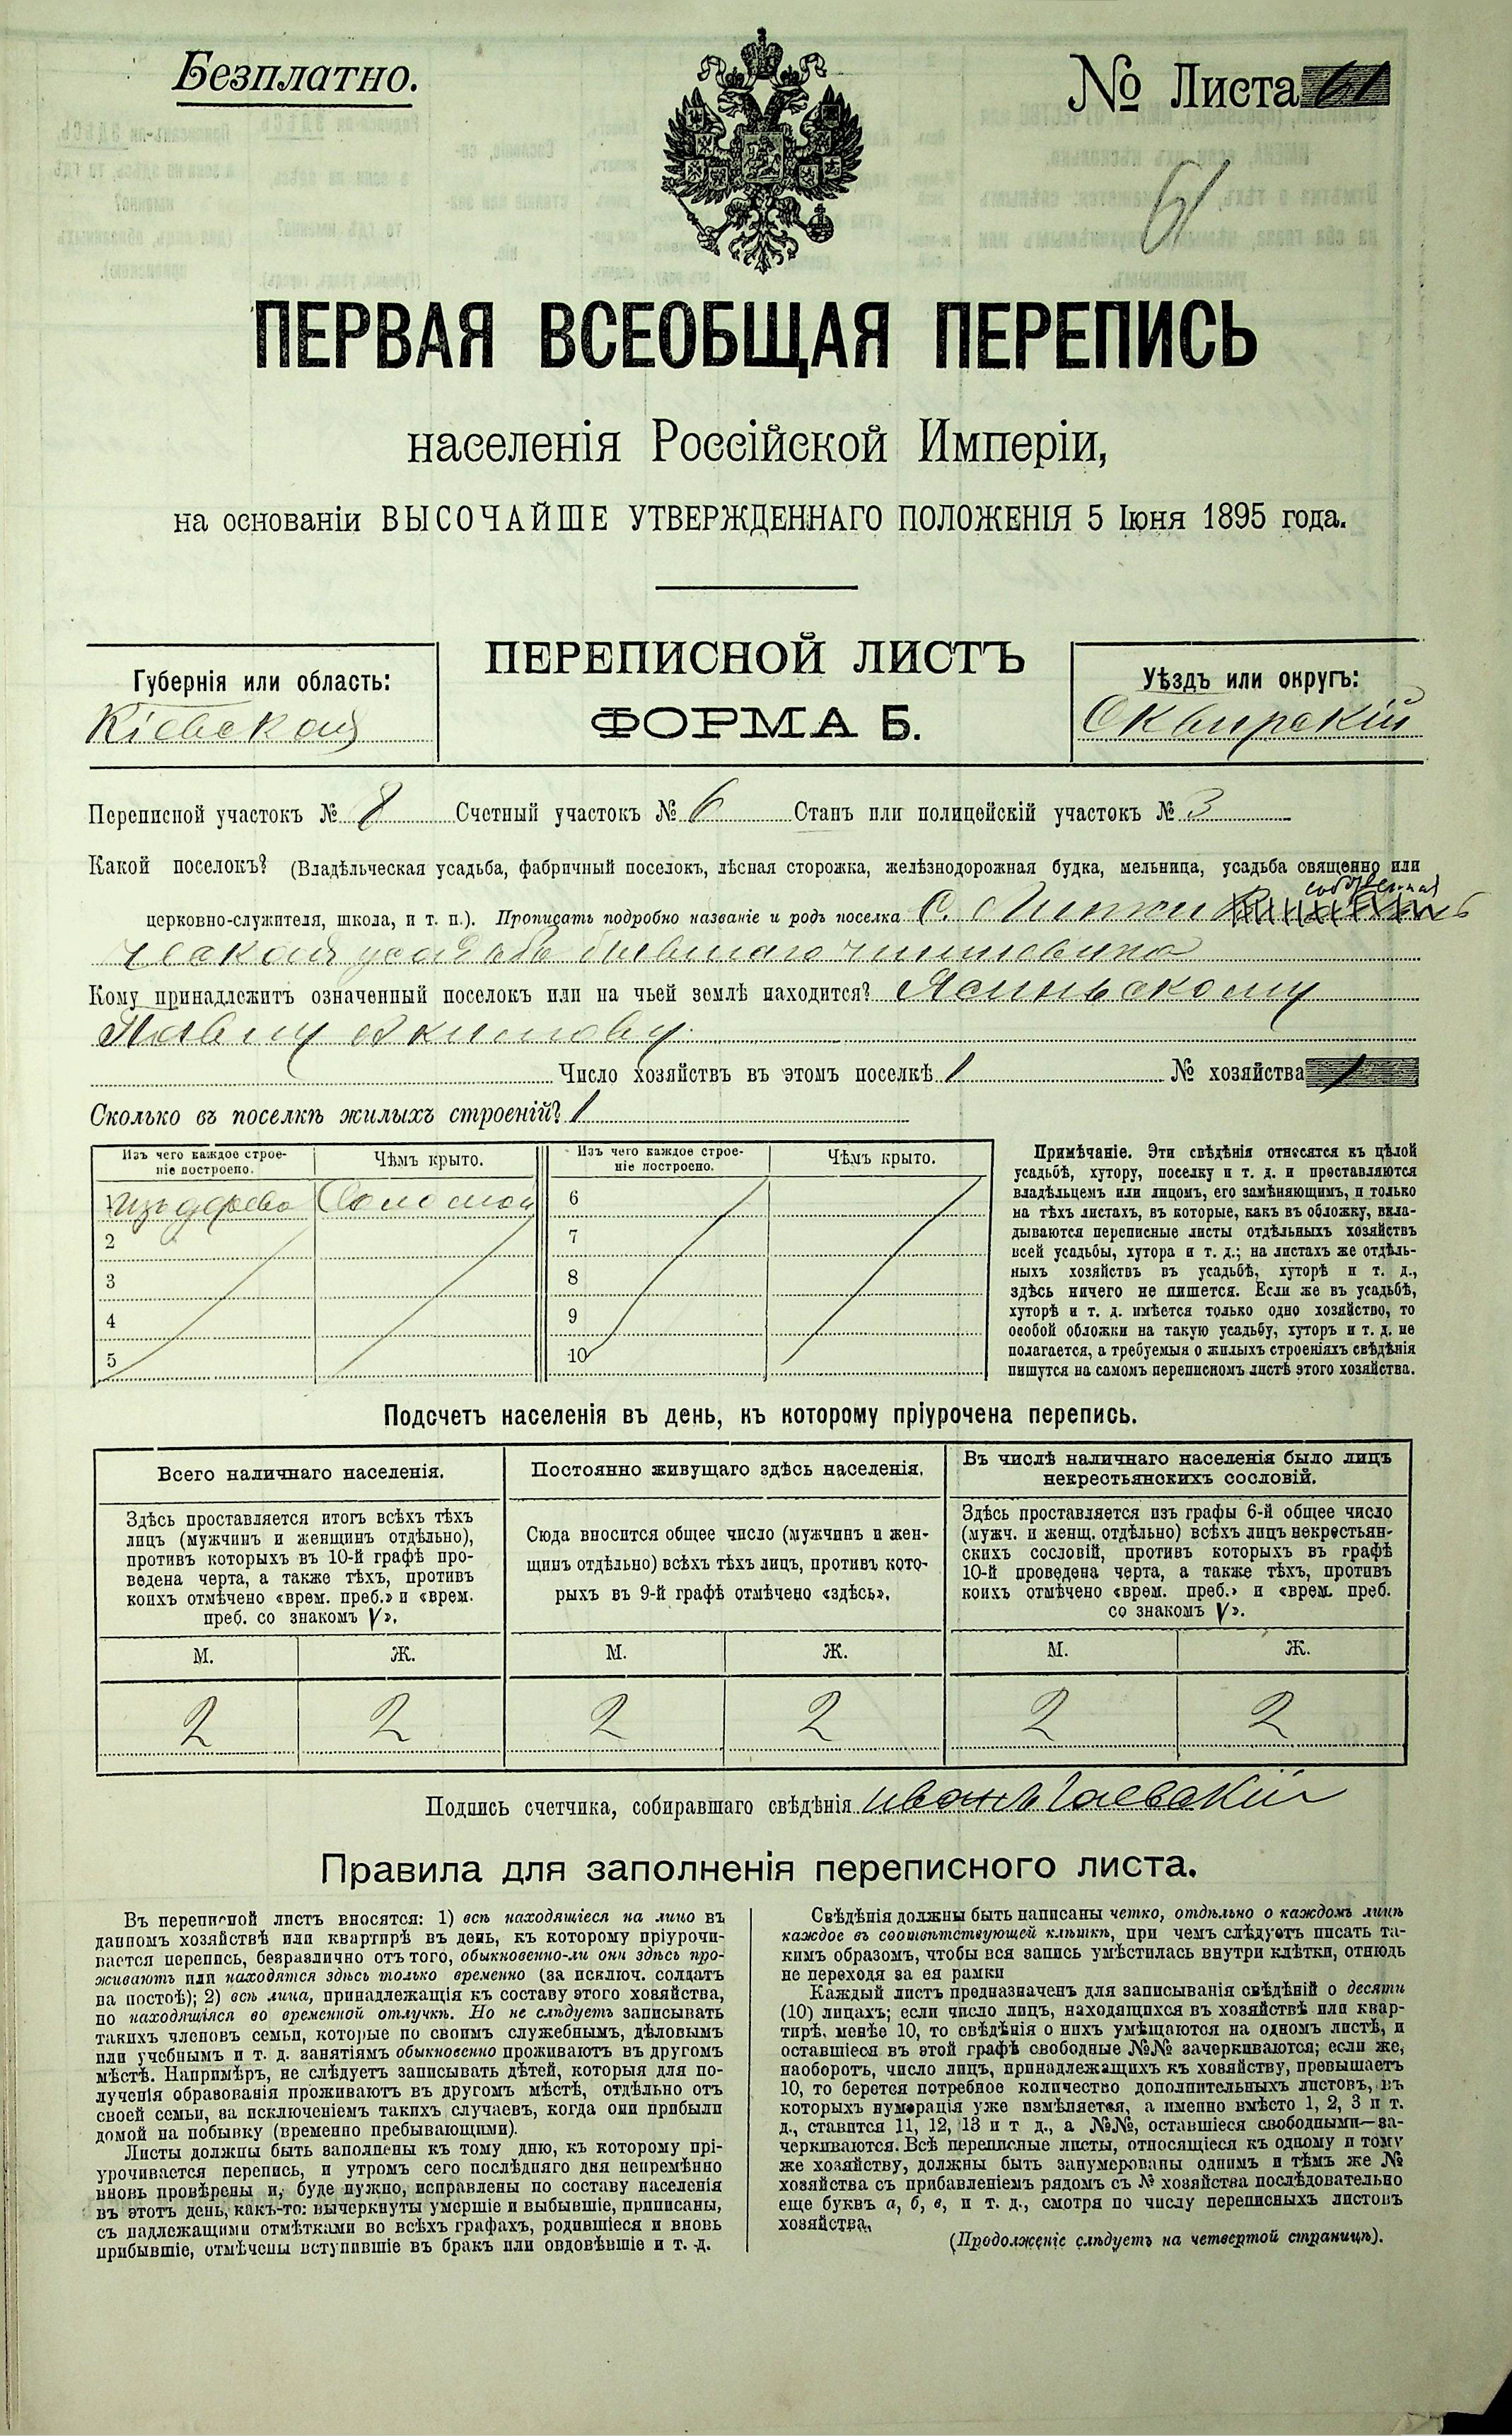 Безплатно.
№ Листа 61
61
ПЕРВАЯ ВСЕОБЩАЯ ПЕРЕПИСЬ
населенія Россійской Имперіи,
на основаніи ВЫСОЧАЙШЕ УТВЕРЖДЕННАГО ПОЛОЖЕНІЯ 5 Іюня 1895 года.
ПЕРЕПИСНОЙ ЛИСТЪ
ФОРМА Б.
Губернія или область:
Кіевская
Уѣздъ или округъ:
Сквирскій
Переписной участокъ № 8 Счетный участокъ № 6 Станъ или полицейскій участокъ № 3
Какой поселокъ? (Владѣльческая усадьба, фабричный поселокъ, лѣсная сторожка, желѣзнодорожная будка, мельница, усадьба священно или
церковно-служителя, школа, и т. п.). Прописать подробно названіе и родъ поселка С.
усадьба бывшаго чиновника
Кому принадлежитъ означенный поселокъ или на чьей землѣ находится? Ясиньскому
Павлу Акимову.
Число хозяйствъ въ этомъ поселкѣ 1 № хозяйства 1
Сколько въ поселкѣ жилыхъ строеній? 1
Изъ чего каждое строе-
ніе построено.
Чѣмъ крыто.
Изъ чего каждое строе-
ніе построено.
Чѣмъ крыто.
1 изъ дерева Соломой 6
2 7
3 8
4 9
5 10
Примѣчаніе. Эти свѣдѣнія относятся къ цѣлой
усадьбѣ, хутору, поселку и т. д. и проставляются
владѣльцемъ или лицомъ, его замѣняющимъ, и только
на тѣхъ листахъ, въ которые, какъ въ обложку, вкла-
дываются переписные листы отдѣльныхъ хозяйствъ
всей усадьбы, хутора и т. д.; на листахъ же отдѣль-
ныхъ хозяйствъ въ усадьбѣ, хуторѣ и т. д.,
здѣсь ничего не пишется. Если же въ усадьбѣ,
хуторѣ и т. д. имѣется только одно хозяйство, то
особой обложки на такую усадьбу, хуторъ и т. д. не
полагается, а требуемыя о жилыхъ строеніяхъ свѣдѣнія
пишутся на самомъ переписномъ листѣ этого хозяйства.
Подсчетъ населенія въ день, къ которому пріурочена перепись.
Всего наличнаго населенія.
Здѣсь проставляется итогъ всѣхъ тѣхъ
лицъ (мужчинъ и женщинъ отдѣльно),
противъ которыхъ въ 10-й графѣ про-
ведена черта, а также тѣхъ, противъ
коихъ отмѣчено «врем. преб.» и «врем.
преб. со знакомъ V».
Постоянно живущаго здѣсь населенія.
Сюда вносится общее число (мужчинъ и жен-
щинъ отдѣльно) всѣхъ тѣхъ лицъ, противъ кото-
рыхъ въ 9-й графѣ отмѣчено «здѣсь».
Въ числѣ наличнаго населенія было лицъ
некрестьянскихъ сословій.
Здѣсь проставляется изъ графы 6-й общее число
(мужч. и женщ. отдѣльно) всѣхъ лицъ некрестьян-
скихъ сословій, противъ которыхъ въ графѣ
10-й проведена черта, а также тѣхъ, противъ
коихъ отмѣчено «врем. преб.» и «врем. преб.
со знакомъ V».
М. Ж. М. Ж. М. Ж.
2 2 2 2 2 2
Подпись счетчика, собиравшаго свѣдѣнія Иванъ Гаевскій
Правила для заполненія переписного листа.
Въ переписной листъ вносятся: 1) всѣ находящіеся на лицо въ
данномъ хозяйствѣ или квартирѣ въ день, къ которому пріурочи-
вается перепись, безразлично отъ того, обыкновенно-ли они здѣсь про-
живаютъ или находятся здѣсь только временно (за исключ. солдатъ
на постоѣ); 2) всѣ лица, принадлежащія къ составу этого хозяйства,
но находящіяся во временной отлучкѣ. Но не слѣдуетъ записывать
такихъ членовъ семьи, которые по своимъ служебнымъ, дѣловымъ
или учебнымъ и т. д. занятіямъ обыкновенно проживаютъ въ другомъ
мѣстѣ. Напримѣръ, не слѣдуетъ записывать дѣтей, которыя для по-
лученія образованія проживаютъ въ другомъ мѣстѣ, отдѣльно отъ
своей семьи, за исключеніемъ такихъ случаевъ, когда они прибыли
домой на побывку (временно пребывающими).
Листы должны быть заполнены къ тому дню, къ которому прі-
урочивается перепись, и утромъ сего послѣдняго дня непремѣнно
вновь провѣрены и, буде нужно, исправлены по составу населенія
въ этотъ день, какъ-то: вычеркнуты умершіе и выбывшіе, приписаны,
съ надлежащими отмѣтками во всѣхъ графахъ, родившіеся и вновь
прибывшіе, отмѣчены вступившіе въ бракъ или овдовѣвшіе и т. д.
Свѣдѣнія должны быть написаны четко, отдѣльно о каждомъ лицѣ
каждое въ соотвѣтствующей клѣткѣ, при чемъ слѣдуетъ писать та-
кимъ образомъ, чтобы вся запись умѣстилась внутри клѣтки, отнюдь
не переходя за ея рамки
Каждый листъ предназначенъ для записыванія свѣдѣній о десяти
(10) лицахъ; если число лицъ, находящихся въ хозяйствѣ или квар-
тирѣ, менѣе 10, то свѣдѣнія о нихъ умѣщаются на одномъ листѣ, и
оставшіеся въ этой графѣ свободные №№ зачеркиваются; если же,
наоборотъ, число лицъ, принадлежащихъ къ хозяйству, превышаетъ
10, то берется потребное количество дополнительныхъ листовъ, въ
которыхъ нумерація уже измѣняется, а именно вмѣсто 1, 2, 3 и т.
д., ставится 11, 12, 13 и т д., а №№, оставшіеся свободными—за-
черкиваются. Всѣ переписные листы, относящіеся къ одному и тому
же хозяйству, должны быть занумерованы однимъ и тѣмъ же №
хозяйства съ прибавленіемъ рядомъ съ № хозяйства послѣдовательно
еще буквъ а, б, в, и т. д., смотря по числу переписныхъ листовъ
хозяйства.
(Продолженіе слѣдуетъ на четвертой страницѣ).